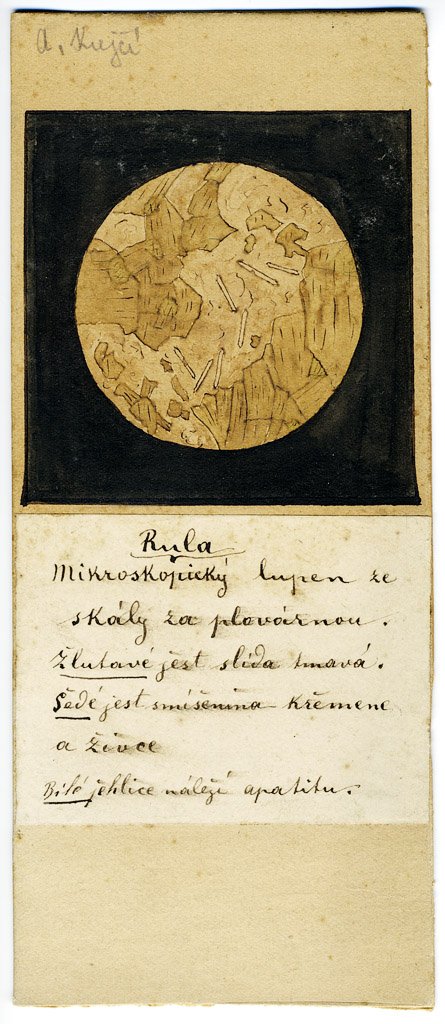 A. Krejčí
Rula
Mikroskopický lupen ze
skály za plovárnou.
Žlutavé jest slída tmavá.
Šedé jest smíšenina křemene
a živce
Bílé jehlice náleží apatitu.